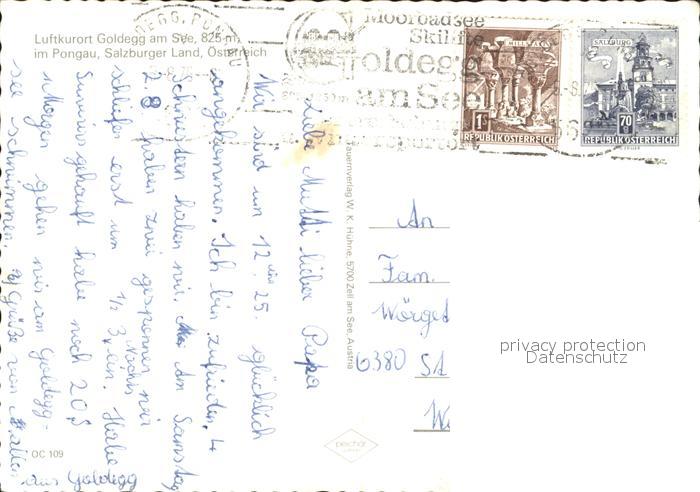 Luftkurort Goldegg am See, 825 m,
im Pongau, Salzburger Land, Österreich
GOLDEGG, PO
Moorbadsee
Skilifte
Goldegg
am See
MILLSTATT
1S
REPUBLIK ÖSTERREICH
SALZBURG
70
REPUBLIK ÖSTERREICH
Liebe Mutti lieber Papa
Wir sind um 12 Uhr 25. glücklich
angekommen. Ich bin zufrieden. 4
Schwestern haben wir. Am Samstag
2.8 haben zwei gesponnen wir
schliefen erst um 1/2 3 Nachts ein. Habe
Sunviss gekauft habe noch 20 S
Morgen gehen wir am Goldegg-
see schwimmen. Grüße von
aus Goldegg
Tauernverlag W. K. Hühne, 5700 Zell am See, Austria
An
Fam.
Wörgel
6380 St
OC 109
privacy protection
Datenschutz